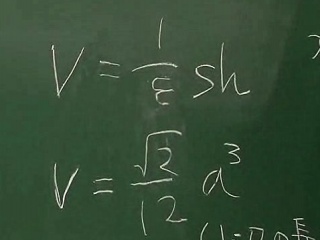 V = 1/3 sh
V = √2/12 a³